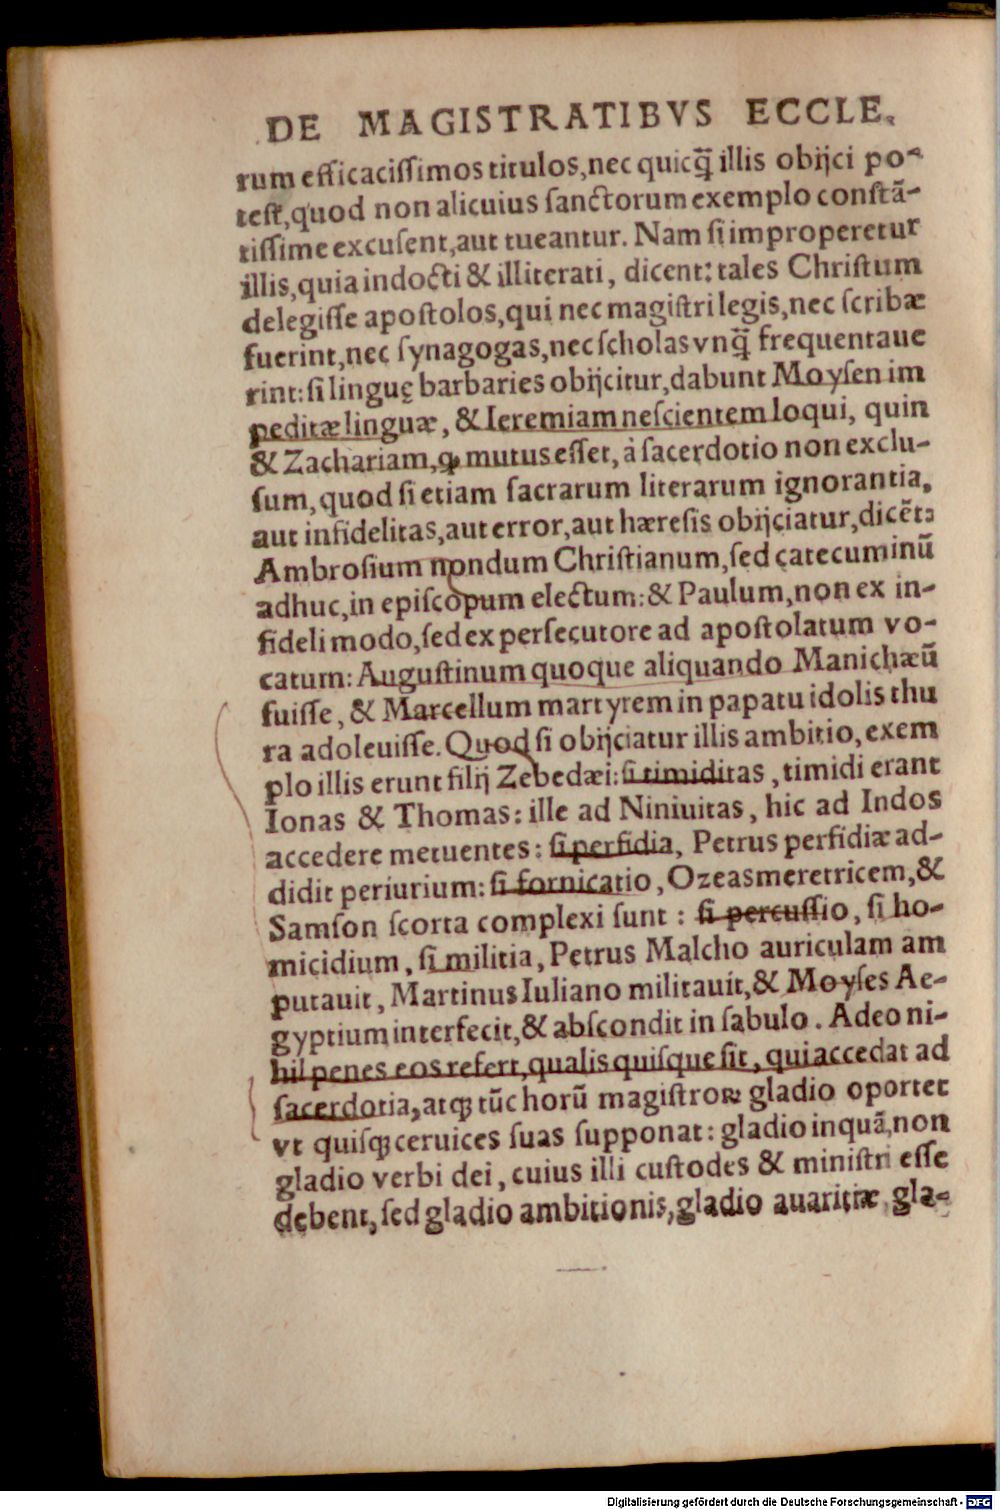 DE MAGISTRATIBVS ECCLE.
rum efficacissimos titulos,nec quicq̃ illis obijci po-
test,quod non alicuius sanctorum exemplo constã-
tissime excusent,aut tueantur. Nam si improperetur
illis,quia indocti & illiterati, dicent: tales Christum
delegisse apostolos,qui nec magistri legis,nec scribæ
fuerint,nec synagogas,nec scholas vnq̃ frequentaue
rint: si linguę barbaries obijcitur,dabunt Moysen im
peditæ linguæ, & Ieremiam nescientem loqui, quin
& Zachariam,ꝙ mutus esset, à sacerdotio non exclu-
sum, quod si etiam sacrarum literarum ignorantia,
aut infidelitas,aut error,aut hæresis obijciatur,dicẽt:
Ambrosium nondum Christianum,sed catecuminũ
adhuc,in episcopum electum: & Paulum,non ex in-
fideli modo,sed ex persecutore ad apostolatum vo-
catum: Augustinum quoque aliquando Manichæũ
fuisse, & Marcellum martyrem in papatu idolis thu
ra adoleuisse. Quod si obijciatur illis ambitio, exem
plo illis erunt filij Zebedæi: si timiditas, timidi erant
Ionas & Thomas: ille ad Niniuitas, hic ad Indos
accedere metuentes: si perfidia, Petrus perfidiæ ad-
didit periurium: si fornicatio, Ozeas meretricem,&
Samson scorta complexi sunt: si percussio, si ho-
micidium, si militia, Petrus Malcho auriculam am
putauit, Martinus Iuliano militauit,& Moyses Ae-
gyptium interfecit,& abscondit in sabulo. Adeo ni-
hil penes eos refert,qualis quisque sit, qui accedat ad
sacerdotia,atꝗ tũc horũ magistroꝝ gladio oportet
vt quisꝗ ceruices suas supponat: gladio inquã,non
gladio verbi dei, cuius illi custodes & ministri esse
debent, sed gladio ambitionis,gladio auaritiæ, gla-
Digitalisierung gefördert durch die Deutsche Forschungsgemeinschaft - DFG